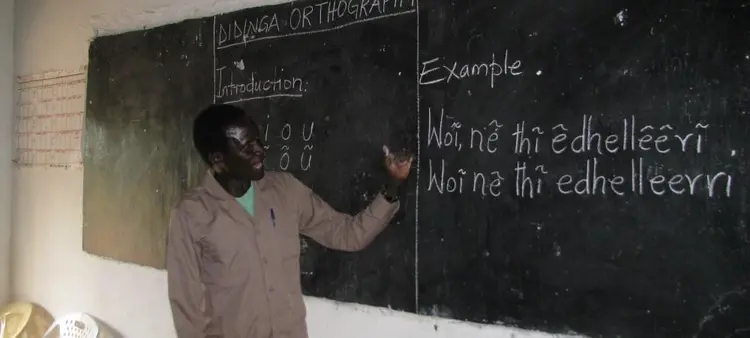 DIDINGA ORTHOGRAPHY
Introduction.
i o u
õ ũ
Example.
Woĩ, nê thĩ êdhellêêrĩ.
Woĩ nê thĩ edhelleerri